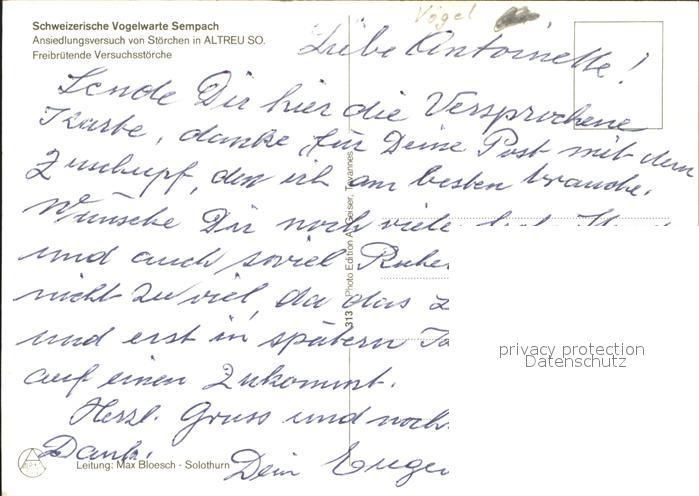 Vögel
Schweizerische Vogelwarte Sempach
Ansiedlungsversuch von Störchen in ALTREU SO.
Freibrütende Versuchsstörche
Liebe Antoinette!
Sende Dir hier die Versprochene
Karte, danke für Deine Post mit dem
Zuschupf, den ich am besten brauche.
Wünsche Dir noch viele
und auch soviel Ruhe
nicht zu viel, da das
und erst in spätern
auf einen Zukommt.
Herzl. Gruss und noch
Dank.
Dein Eugen
Leitung: Max Bloesch - Solothurn
313 Photo Edition A. Geiser, Tavannes
privacy protection
Datenschutz